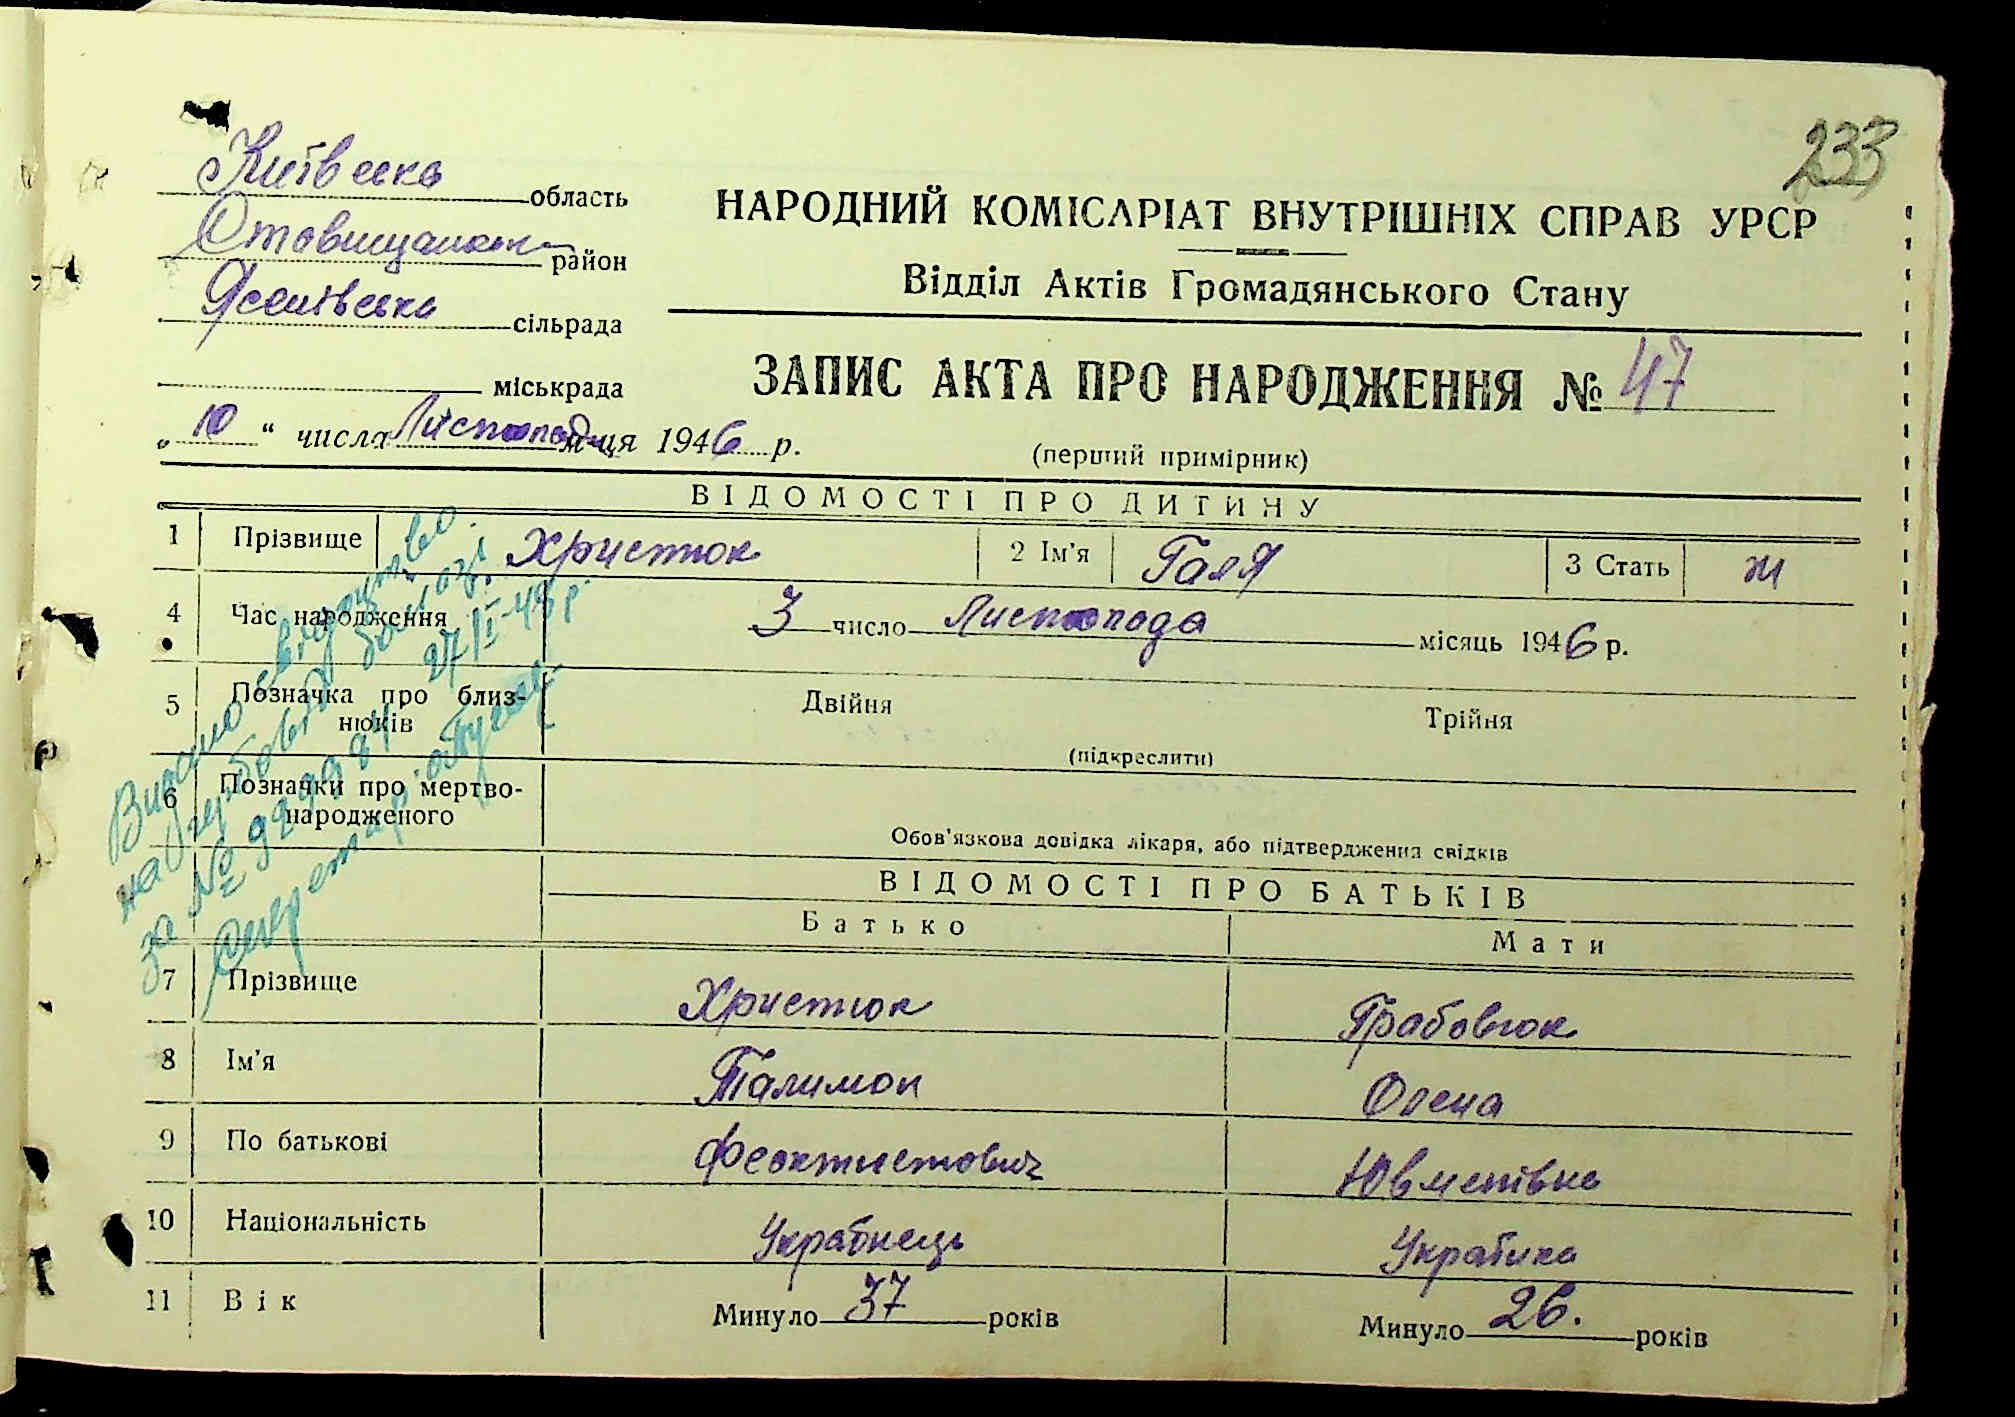 233
Київська область
Стовищанськ район
Ясенівська сільрада
міськрада
НАРОДНИЙ КОМІСАРІАТ ВНУТРІШНІХ СПРАВ УРСР
Відділ Актів Громадянського Стану
ЗАПИС АКТА ПРО НАРОДЖЕННЯ № 47
„ 10 “ числа Листопада м-ця 1946 р.
(перший примірник)
ВІДОМОСТІ ПРО ДИТИНУ
1 Прізвище Христюк 2 Ім'я Галя 3 Стать ж
4 Час народження 3 число Листопада місяць 1946 р.
5 Позначка про близнюків Двійня Трійня
(підкреслити)
6 Позначки про мертвонародженого
Обов'язкова довідка лікаря, або підтвердження свідків
Видано свідоцтво
на гербовій бумазі
за № 27/I-48 р.
Секретар
ВІДОМОСТІ ПРО БАТЬКІВ
Батько Мати
7 Прізвище Христюк Грабовюк
8 Ім'я Талимон Олена
9 По батькові Феоктистович Ювменівна
10 Національність Українець Українка
11 Вік Минуло 37 років Минуло 26. років